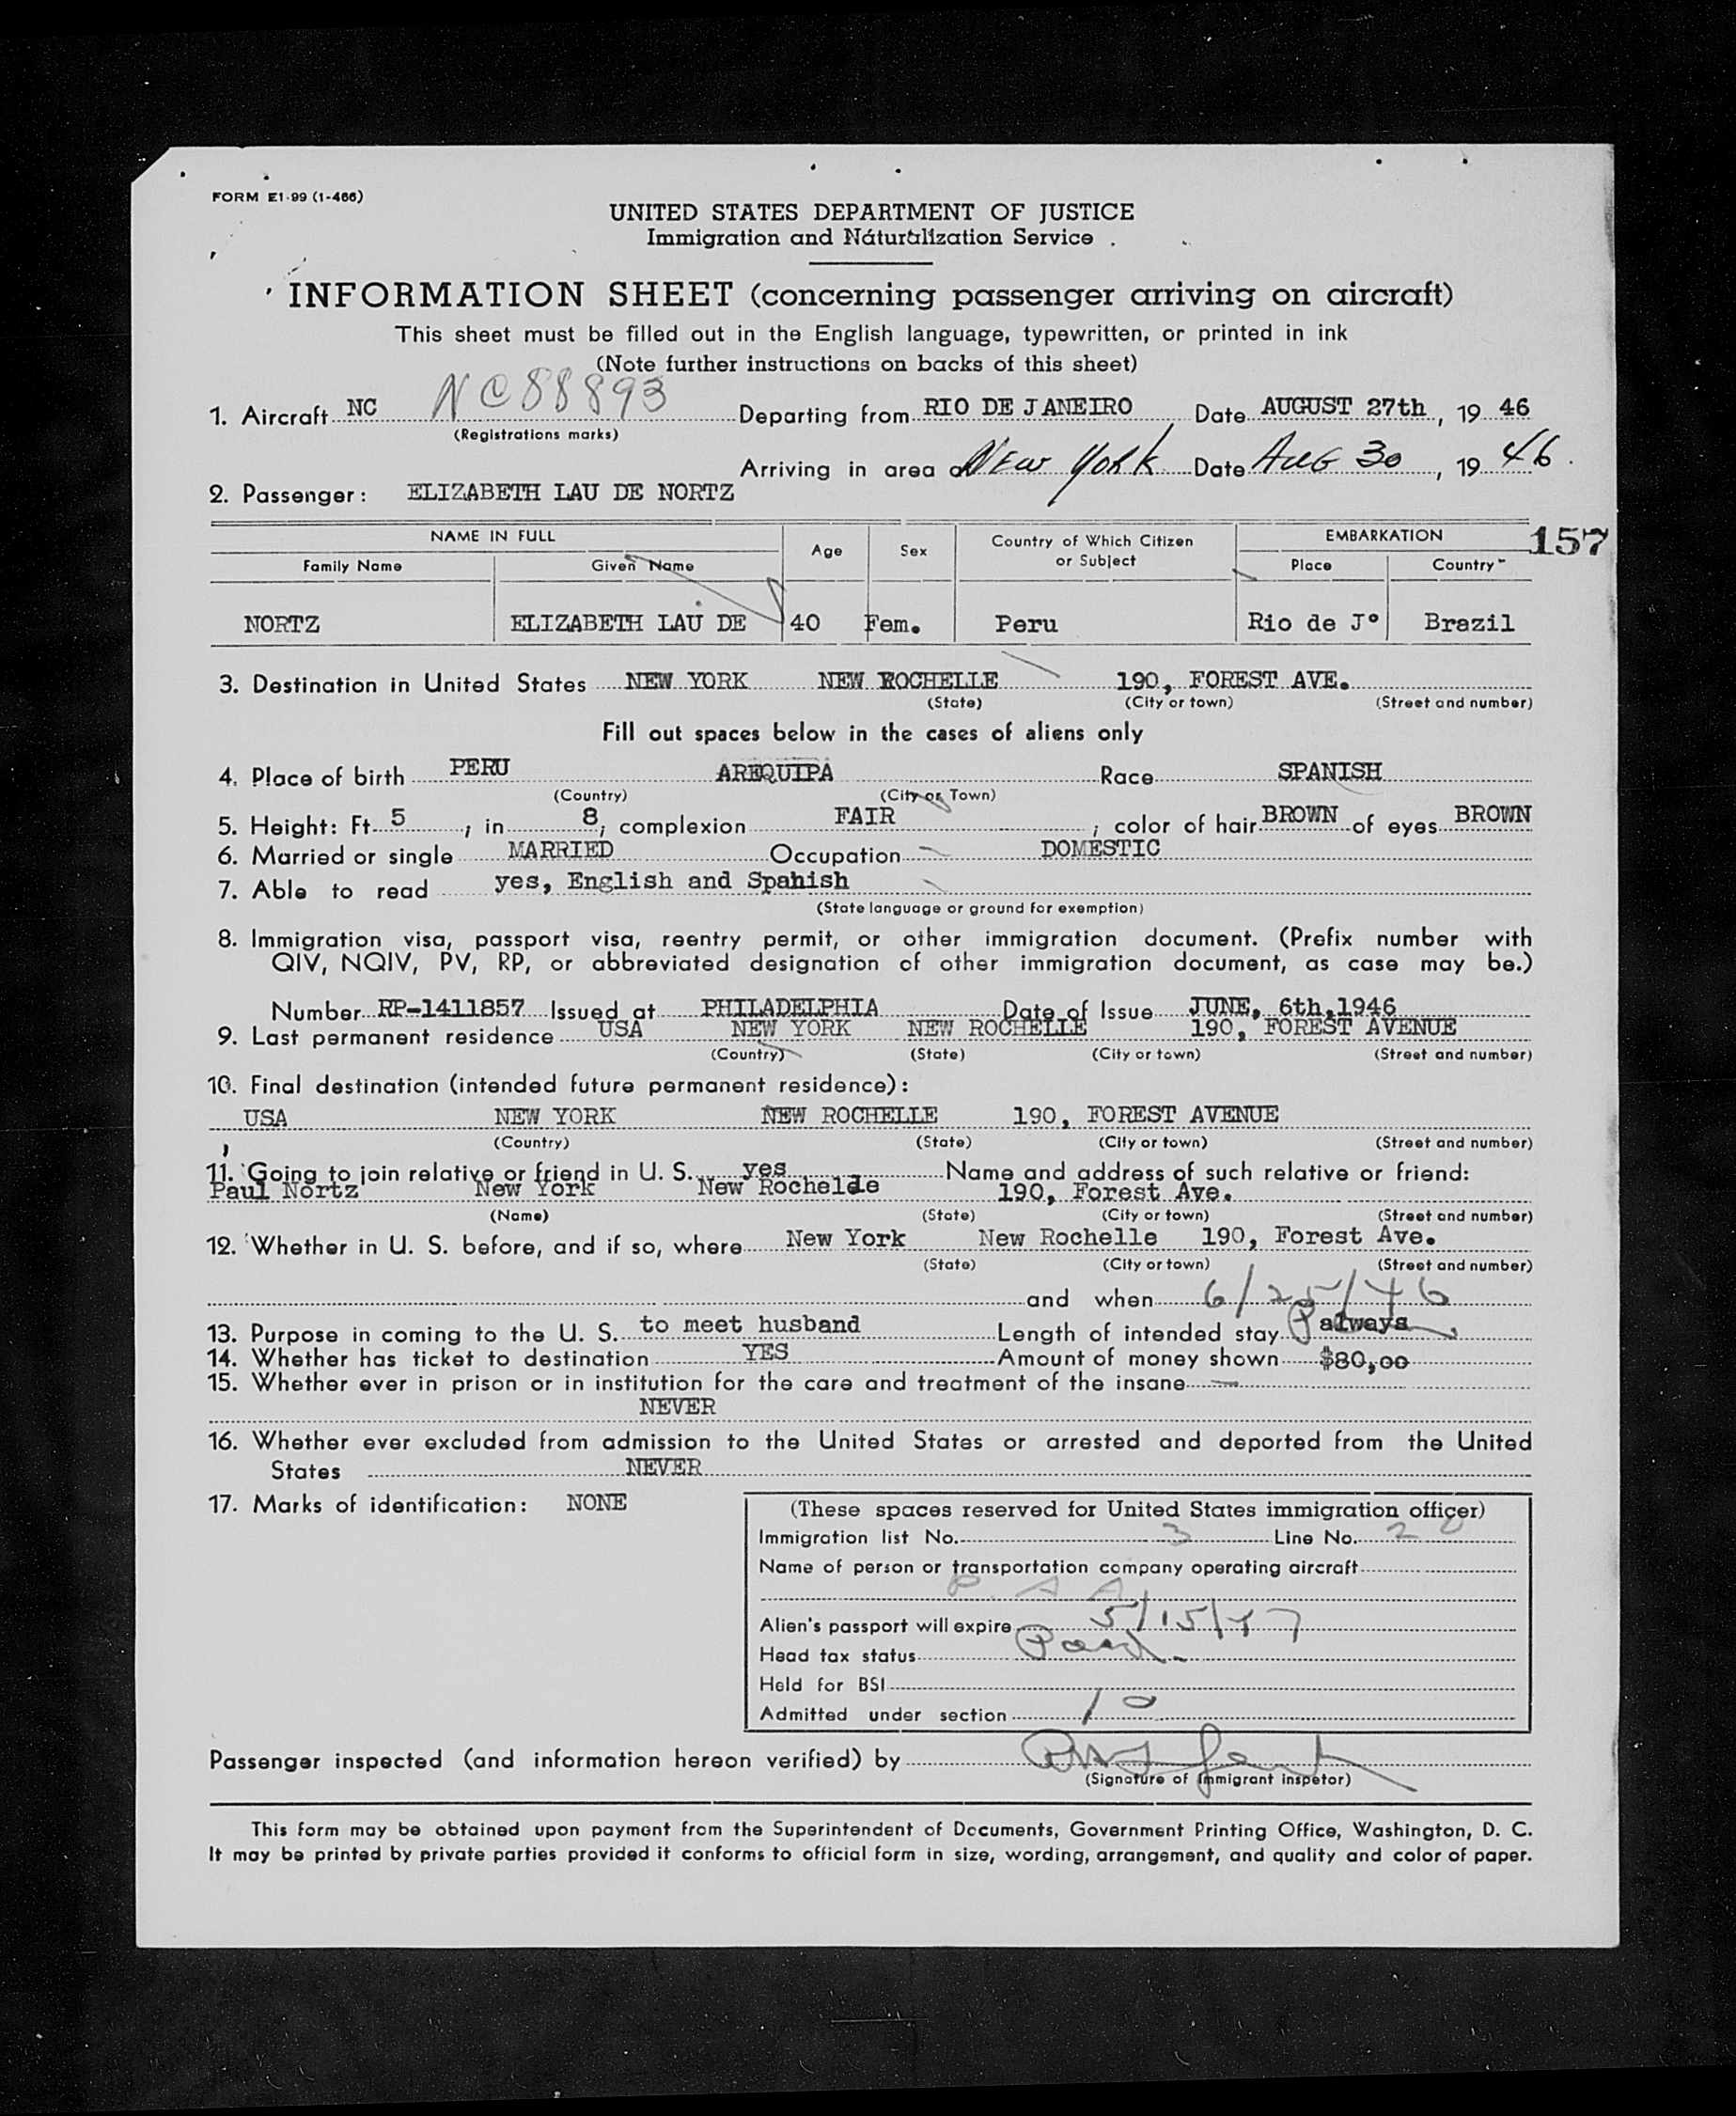 FORM E1-99 (1-466)
UNITED STATES DEPARTMENT OF JUSTICE
Immigration and Naturalization Service
INFORMATION SHEET (concerning passenger arriving on aircraft)
This sheet must be filled out in the English language, typewritten, or printed in ink
(Note further instructions on backs of this sheet)
1. Aircraft NC NC88893 Departing from RIO DE JANEIRO Date AUGUST 27th, 19 46
(Registrations marks)
Arriving in area of New York Date Aug 30, 19 46
2. Passenger: ELIZABETH LAU DE NORTZ
NAME IN FULL Age Sex Country of Which Citizen or Subject EMBARKATION 157
Family Name Given Name Place Country
NORTZ ELIZABETH LAU DE 40 Fem. Peru Rio de Jº Brazil
3. Destination in United States NEW YORK NEW ROCHELLE 190, FOREST AVE.
(State) (City or town) (Street and number)
Fill out spaces below in the cases of aliens only
4. Place of birth PERU AREQUIPA Race SPANISH
(Country) (City or Town)
5. Height: Ft. 5, in 8; complexion FAIR; color of hair BROWN of eyes BROWN
6. Married or single MARRIED Occupation DOMESTIC
7. Able to read yes, English and Spanish
(State language or ground for exemption)
8. Immigration visa, passport visa, reentry permit, or other immigration document. (Prefix number with
QIV, NQIV, PV, RP, or abbreviated designation of other immigration document, as case may be.)
Number RP-1411857 Issued at PHILADELPHIA Date of Issue JUNE, 6th,1946
9. Last permanent residence USA NEW YORK NEW ROCHELLE 190, FOREST AVENUE
(Country) (State) (City or town) (Street and number)
10. Final destination (intended future permanent residence):
USA NEW YORK NEW ROCHELLE 190, FOREST AVENUE
(Country) (State) (City or town) (Street and number)
11. Going to join relative or friend in U. S. yes Name and address of such relative or friend:
Paul Nortz New York New Rochelle 190, Forest Ave.
(Name) (State) (City or town) (Street and number)
12. Whether in U. S. before, and if so, where New York New Rochelle 190, Forest Ave.
(State) (City or town) (Street and number)
and when 6/25/46
13. Purpose in coming to the U. S. to meet husband Length of intended stay always
14. Whether has ticket to destination YES Amount of money shown $80,00
15. Whether ever in prison or in institution for the care and treatment of the insane
NEVER
16. Whether ever excluded from admission to the United States or arrested and deported from the United
States NEVER
17. Marks of identification: NONE
(These spaces reserved for United States immigration officer)
Immigration list No. 3 Line No. 20
Name of person or transportation company operating aircraft
P. A A
Alien's passport will expire 5/15/47
Head tax status Paid
Held for BSI
Admitted under section 10
Passenger inspected (and information hereon verified) by
(Signature of Immigrant inspetor)
This form may be obtained upon payment from the Superintendent of Documents, Government Printing Office, Washington, D. C.
It may be printed by private parties provided it conforms to official form in size, wording, arrangement, and quality and color of paper.